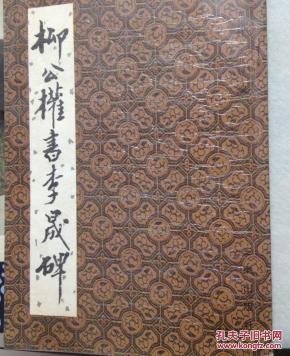 柳公權書李晟碑
孔夫子旧书网